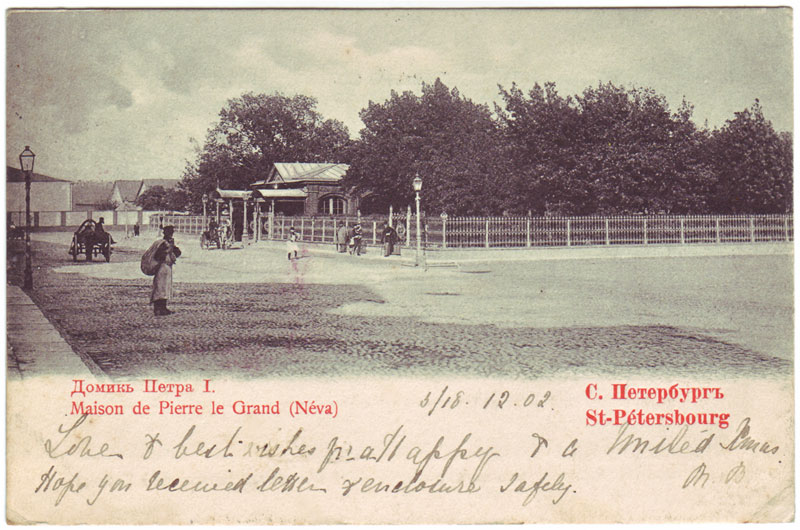 Домикъ Петра I.
Maison de Pierre le Grand (Néva)
5/18. 12.02.
С. Петербургъ
St-Pétersbourg
Love & best wishes for a Happy & a United Xmas.
Hope you received letter & enclosure safely.